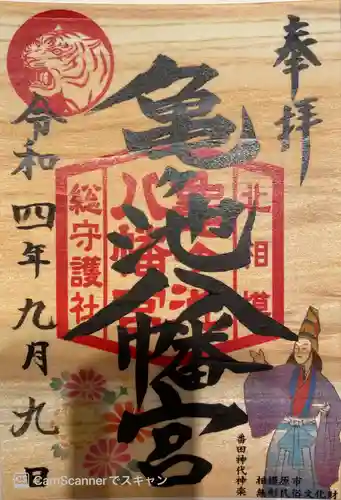 奉拝
亀ヶ池八幡宮
北相模
亀ヶ池
八幡宮
総守護社
令和四年九月九日
番田神代神楽
相模原市
無形民俗文化財
CamScannerでスキャン